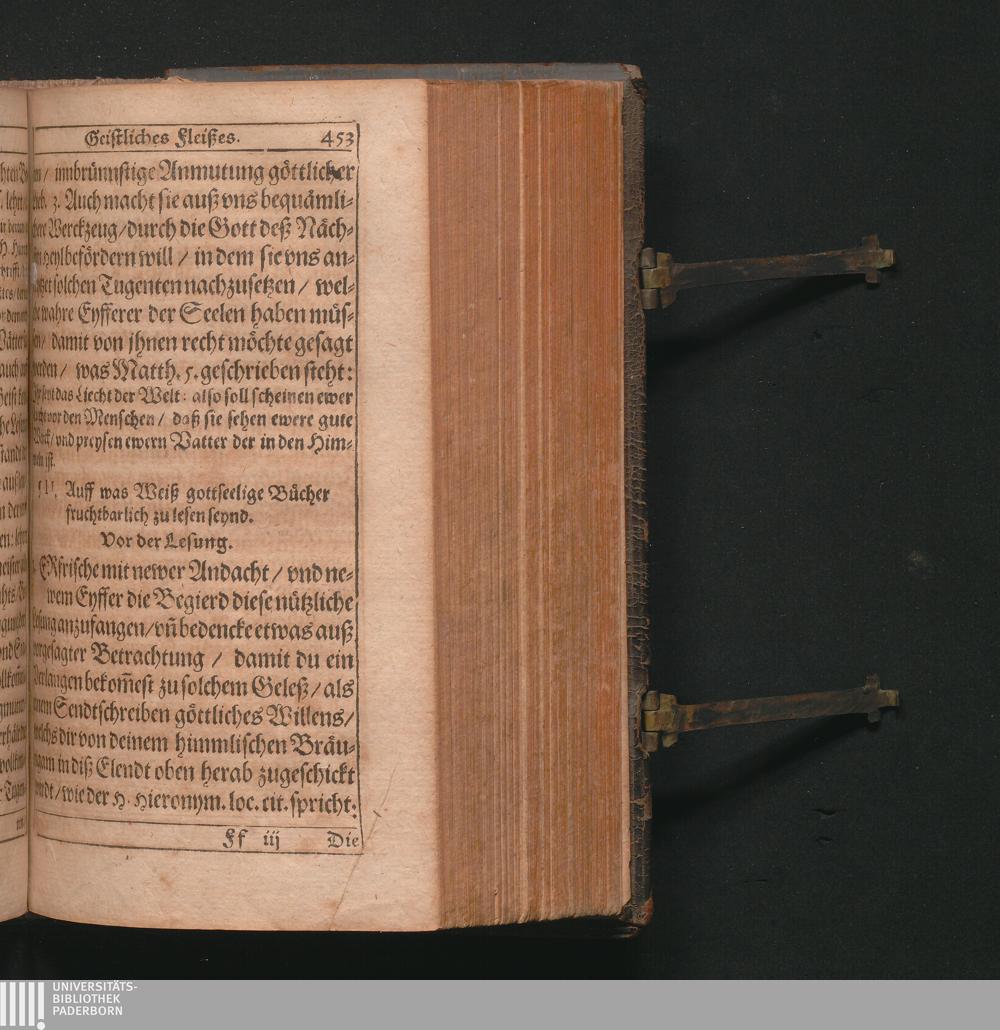 Geistliches Fleißes. 453
en/ innbrünnstige Anmutung göttlicher
Lieb. 3. Auch macht sie auß vns bequämli-
chere Werckzeug/ durch die Gott deß Näch-
heyl befördern will/ in dem sie vns an-
solchen Tugenten nachzusetzen/ wel-
che wahre Eyfferer der Seelen haben müs-
sen/ damit von jhnen recht möchte gesagt
werden/ was Matth. 5. geschrieben steht:
Ihr seyt das Liecht der Welt: also soll scheinen ewer
Liecht vor den Menschen/ daß sie sehen ewere gute
Werck/ vnd preysen ewern Vatter der in den Him-
meln ist.
Auff was Weiß gottseelige Bücher
fruchtbarlich zu lesen seynd.
Vor der Lesung.
ERfrische mit newer Andacht/ vnd ne-
wem Eyffer die Begierd diese nützliche
Lesung anzufangen/ vn̄ bedencke etwas auß
vorgesagter Betrachtung/ damit du ein
Verlangen bekom̄est zu solchem Geleß/ als
einem Sendtschreiben göttliches Willens/
welchs dir von deinem himmlischen Bräu-
tigam in diß Elendt oben herab zugeschickt
wirdt/ wie der H. Hieronym. loc. cit. spricht:
Ff iij Die
UNIVERSITÄTS-
BIBLIOTHEK
PADERBORN